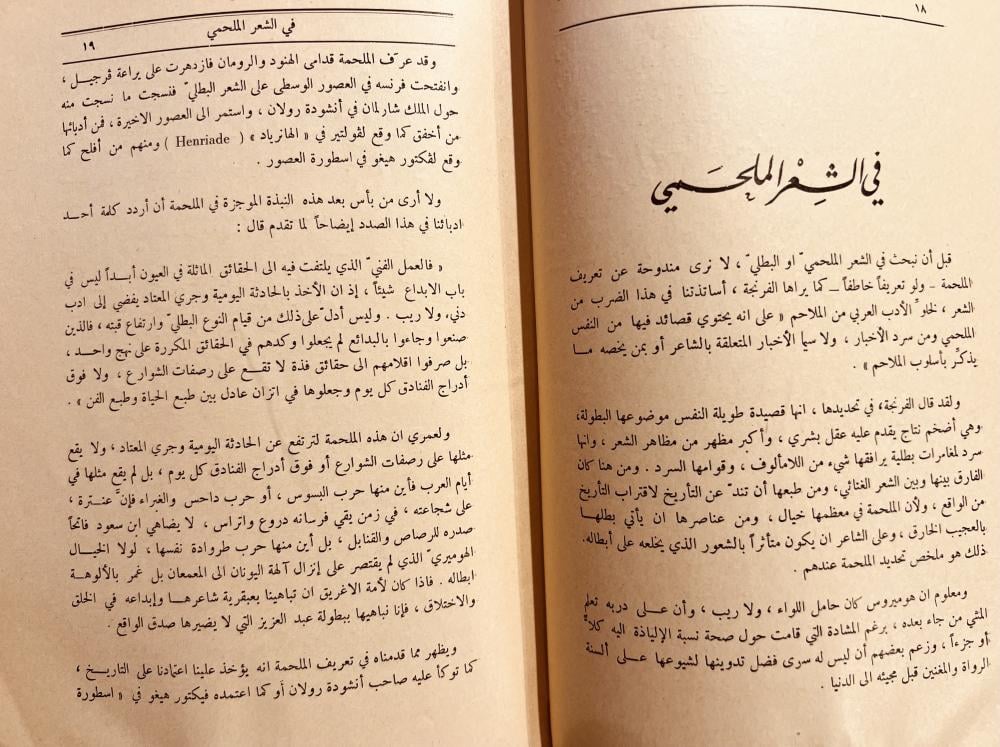 ١٨
في الشعر الملحمي
قبل أن نبحث في الشعر الملحميّ او البطليّ ، لا نرى مندوحة عن تعريف
الملحمة - ولو تعريفاً خاطفاً - كما يراها الفرنجة ، أساتذتنا في هذا الضرب من
الشعر ، لخلوّ الأدب العربي من الملاحم « على انه يحتوي قصائد فيها من النفس
الملحمي ومن سرد الأخبار ، ولا سيما الأخبار المتعلقة بالشاعر أو بمن يخصه ما
يذكّر بأسلوب الملاحم » .
ولقد قال الفرنجة، في تحديدها ، انها قصيدة طويلة النفس موضوعها البطولة،
وهي أضخم نتاج يقدم عليه عقل بشري ، وأكبر مظهر من مظاهر الشعر ، وانها
سرد لمغامرات بطلية يرافقها شيء من اللامألوف ، وقوامها السرد . ومن هنا كان
الفارق بينها وبين الشعر الغنائي، ومن طبعها أن تندّ عن التأريخ لاقتراب التأريخ
من الواقع ، ولأن الملحمة في معظمها خيال ، ومن عناصرها ان يأتي بطلها
بالعجيب الخارق ، وعلى الشاعر ان يكون متأثراً بالشعور الذي يخلعه على أبطاله.
ذلك هو ملخص تحديد الملحمة عندهم .
ومعلوم ان هوميروس كان حامل اللواء ، ولا ريب ، وأن على دربه تعلم
المشي من جاء بعده ، برغم المشادة التي قامت حول صحة نسبة الإلياذة اليه كلاًّ
أو جزءاً ، وزعم بعضهم أن ليس له سرى فضل تدوينها لشيوعها على ألسنة
الرواة والمغنين قبل مجيئه الى الدنيا .
في الشعر الملحمي
١٩
وقد عرَف الملحمة قدامى الهنود والرومان فازدهرت على يراعة ڤرجيل ،
وانفتحت فرنسه في العصور الوسطى على الشعر البطليّ فنسجت ما نسجت منه
حول الملك شارلمان في أنشودة رولان ، واستمر الى العصور الاخيرة ، فمن أدبائها
من أخفق كما وقع لڤولتير في « الهانرياد » ( Henriade ) ومنهم من أفلح كما
وقع لڤكتور هيغو في اسطورة العصور .
ولا أرى من بأس بعد هذه النبذة الموجزة في الملحمة أن أردد كلمة أحد
ادبائنا في هذا الصدد إيضاحاً لما تقدم قال :
« فالعمل الفنيّ الذي يلتفت فيه الى الحقائق الماثلة في العيون أبداً ليس في
باب الابداع شيئاً ، إذ ان الأخذ بالحادثة اليومية وجري المعتاد يفضي إلى ادب
دني، ولا ريب . وليس أدلّ على ذلك من قيام النوع البطليّ وارتفاع قبته ، فالذين
صنعوا وجاءوا بالبدائع لم يجعلوا وكدهم في الحقائق المكررة على نهج واحد ،
بل صرفوا اقلامهم الى حقائق فذة لا تقع على رصفات الشوارع ، ولا فوق
أدراج الفنادق كل يوم وجعلوها في اتزان عادل بين طبع الحياة وطبع الفن » .
ولعمري ان هذه الملحمة لترتفع عن الحادثة اليومية وجري المعتاد ، ولا يقع
مثلها على رصفات الشوارع أو فوق أدراج الفنادق كل يوم ، بل لم يقع مثلها في
أيام العرب فأين منها حرب البسوس ، أو حرب داحس والغبراء فإنَّ عنترة ،
على شجاعته ، في زمن يقي فرسانه دروع واتراس ، لا يضاهي ابن سعود فاتحاً
صدره للرصاص والقنابل ، بل أين منها حرب طروادة نفسها ، لولا الخيال
الهوميريّ الذي لم يقتصر على إنزال آلهة اليونان الى المعمعان بل غمر بالألوهة
ابطاله . فاذا كان لأمة الاغريق ان تباهينا بعبقرية شاعرها وإبداعه في الخلق
والاختلاق ، فإنا نباهيها ببطولة عبد العزيز التي لا يضيرها صدق الواقع .
ويظهر مما قدمناه في تعريف الملحمة انه يؤخذ علينا اعتمادنا على التاريخ ،
كما توكأ عليه صاحب أنشودة رولان أو كما اعتمده فيكتور هيغو في « اسطورة